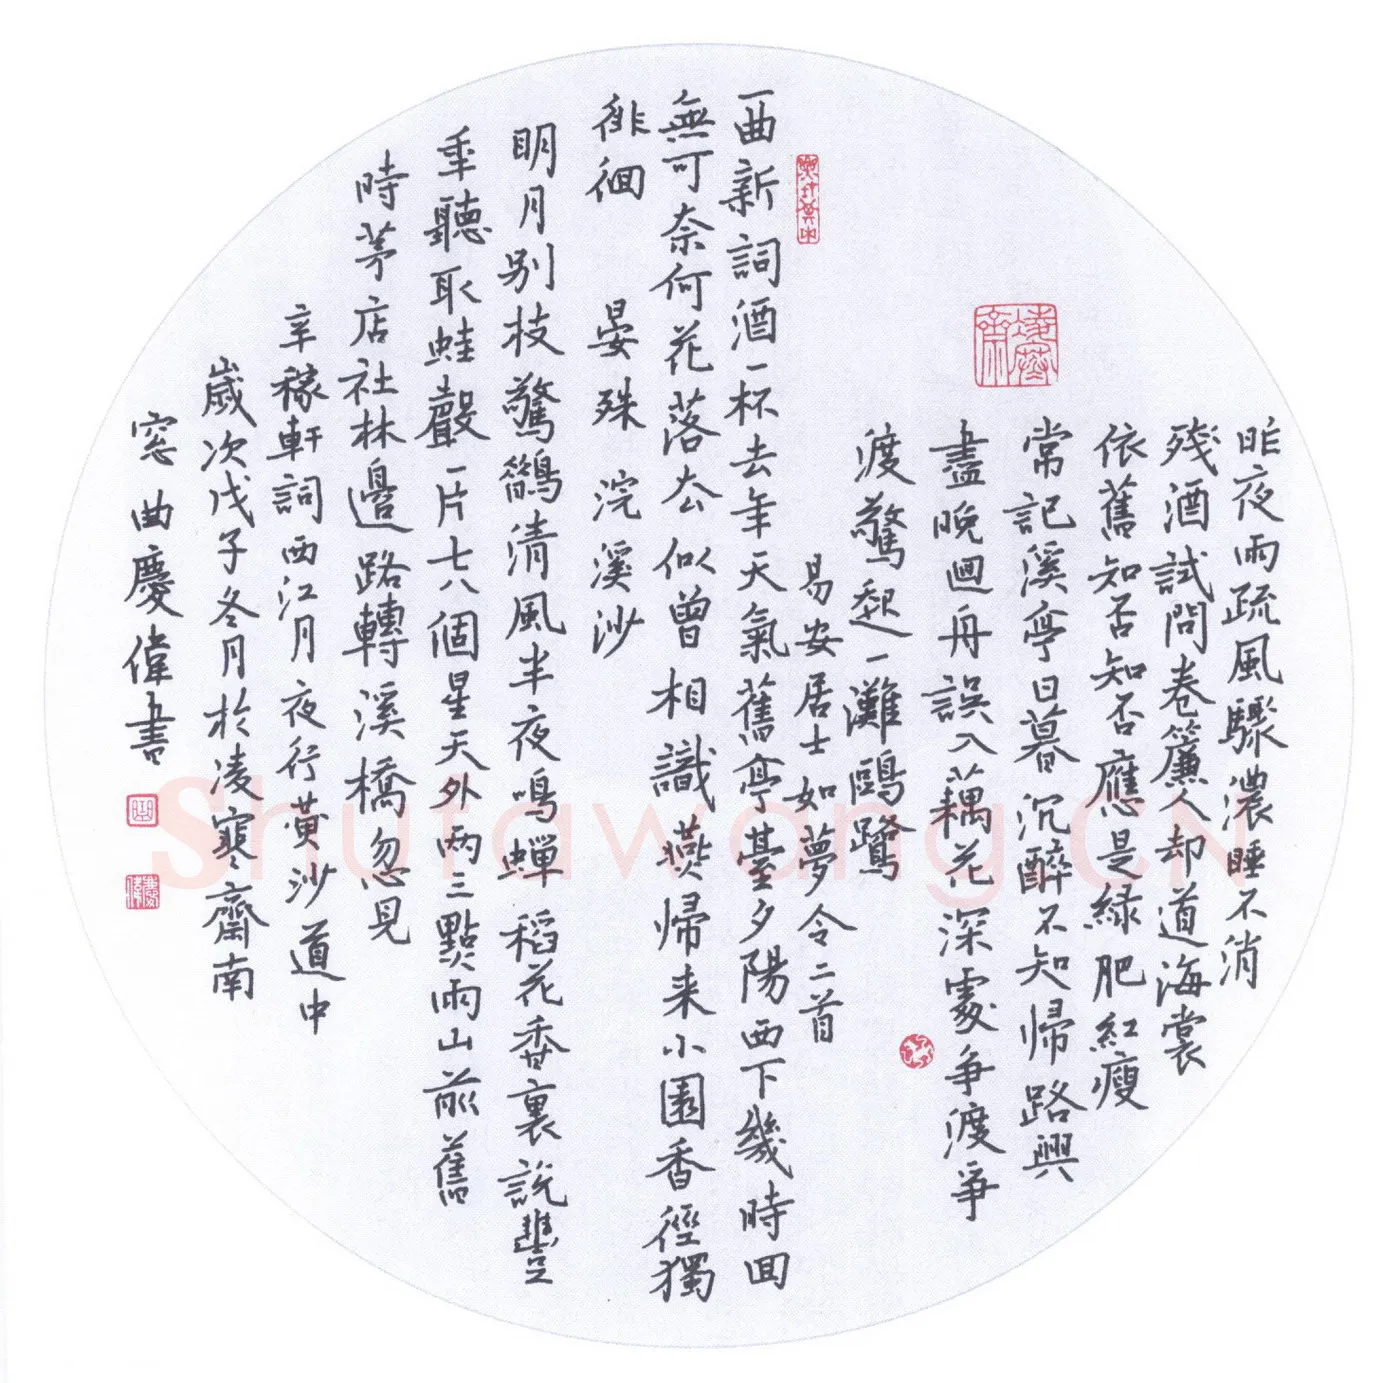 昨夜雨疏風驟濃睡不消
殘酒試問卷簾人却道海裳
依舊知否知否應是綠肥紅瘦
常記溪亭日暮沉醉不知歸路興
盡晚迴舟誤入藕花深處爭渡爭
渡驚起一灘鷗鷺
易安居士如夢令二首
一曲新詞酒一杯去年天氣舊亭臺夕陽西下幾時回
無可奈何花落去似曾相識燕歸来小園香徑獨
徘徊 晏殊 浣溪沙
明月别枝驚鵲清風半夜鳴蟬稻花香裏説豐
年聽取蛙聲一片七八個星天外兩三點雨山前舊
時茅店社林邊路轉溪橋忽見
辛稼軒詞西江月夜行黄沙道中
歲次戊子冬月於凌寒齋南
窓 曲慶偉書
Shufawang.CN